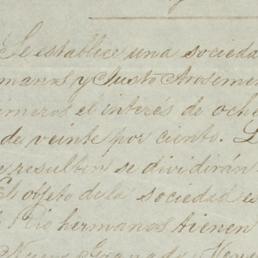 Se establece una socieda
manos y Justo Arosemen
imeros el interés de och
de veinte por ciento. L
e resulten se dividirán
El objeto de la sociedad es
hermanos tienen
Nueva Granada y Vene